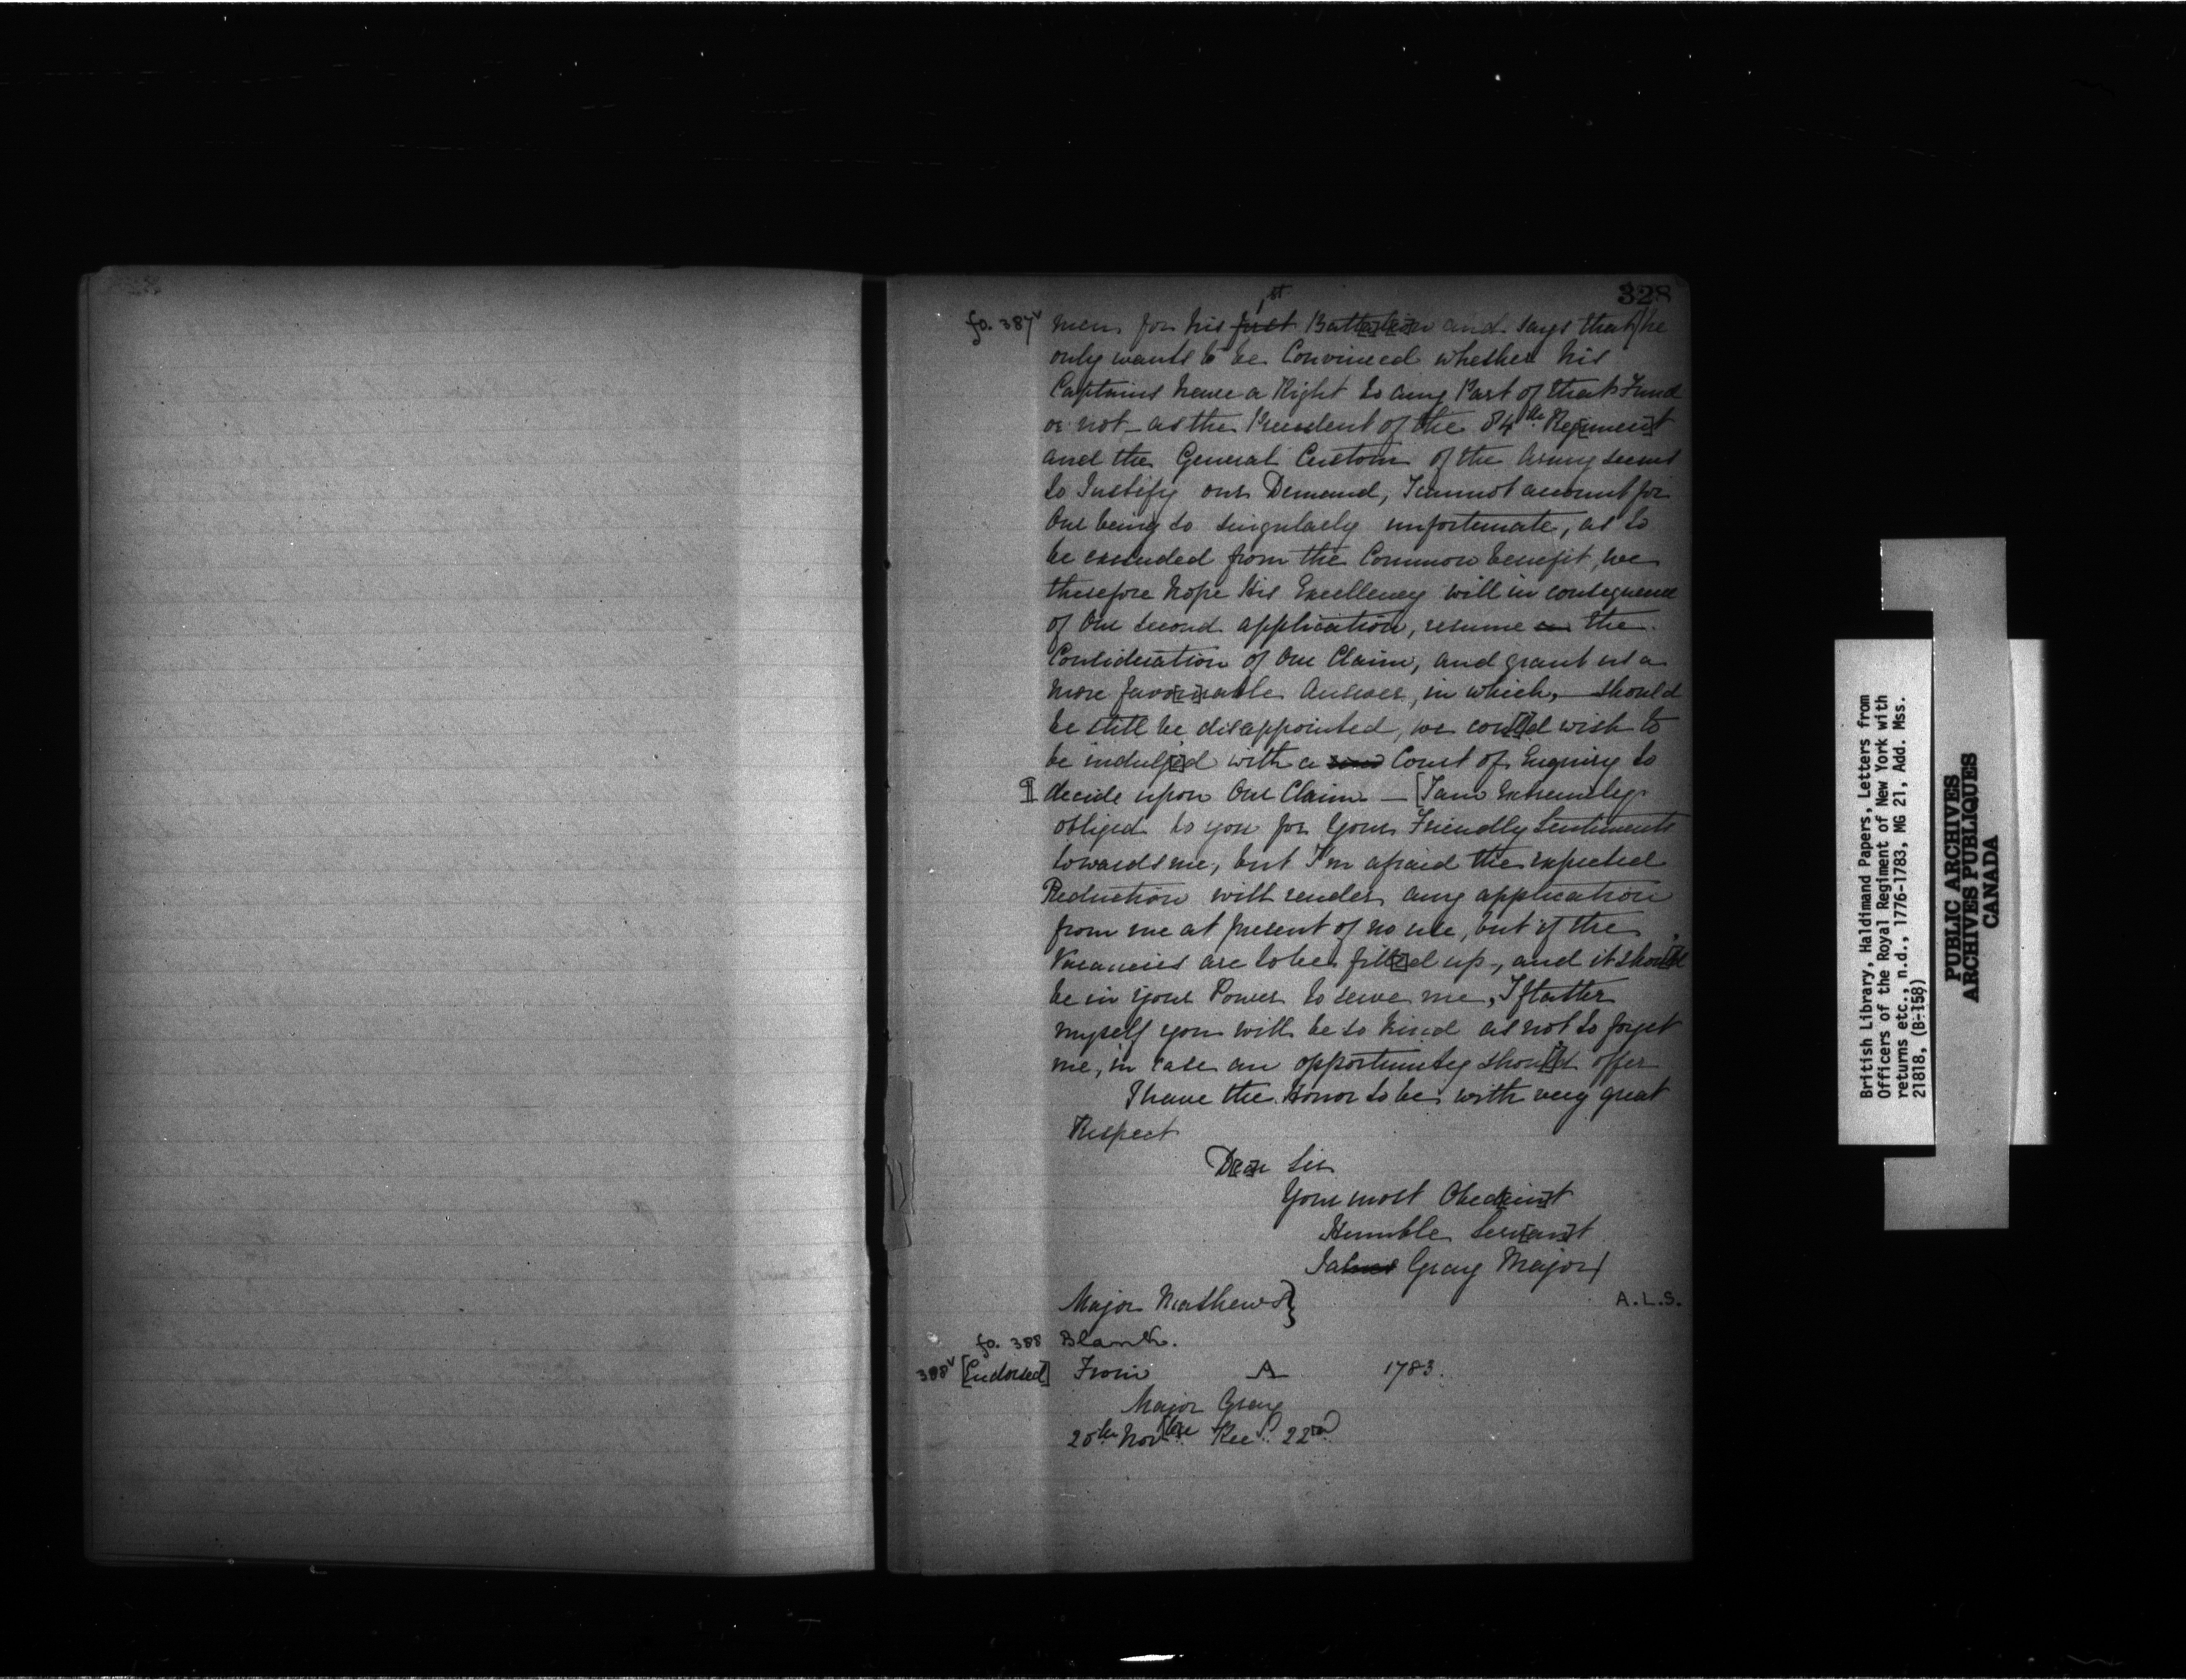 328
fo. 387v men for his first 1st Batt[alio]n and says that he
only wants to be Convinced whether his
Captains have a Right to any Part of that Fund
or not – as the Precedent of the 84th Reg[imen]t
and the General Custom of the Army seems
to Justify our Demand, I cannot account for
Our being so singularly unfortunate, as to
be excluded from the Common benefit, we
therefore hope His Excellency will in consequence
of Our second application, resume the
Consideration of Our Claim, and grant us a
more favo[u]rable Answer, in which, should
be still be disappointed, we cou[l]d wish to
be indulg[e]d with a Court of Enquiry to
decide upon Our Claim – [I am Extremely
obliged to you for Your Friendly Sentiments
towards me, but I'm afraid the expected
Reduction will render any application
from me at present of no use, but if the
Vacancies are to be fill[e]d up, and it shou[l]d
be in your Power to serve me, I flatter
myself you will be so kind as not to forget
me, in case an opportunity shou[l]d offer
I have the Honor to be with very great
Respect
D[ea]r Sir
Your most Obed[ien]t
Humble Serv[an]t
Ja Gray Major
Major Mathews}
A.L.S.
fo. 388 Blank.
388v [Endorsed] From A 1783.
Major Gray
20th Nov[bre Recd. 22nd
British Library, Haldimand Papers, Letters from
Officers of the Royal Regiment of New York with
returns etc., n.d., 1776-1783, MG 21, Add. Mss.
21818, (B-158)
PUBLIC ARCHIVES
ARCHIVES PUBLIQUES
CANADA